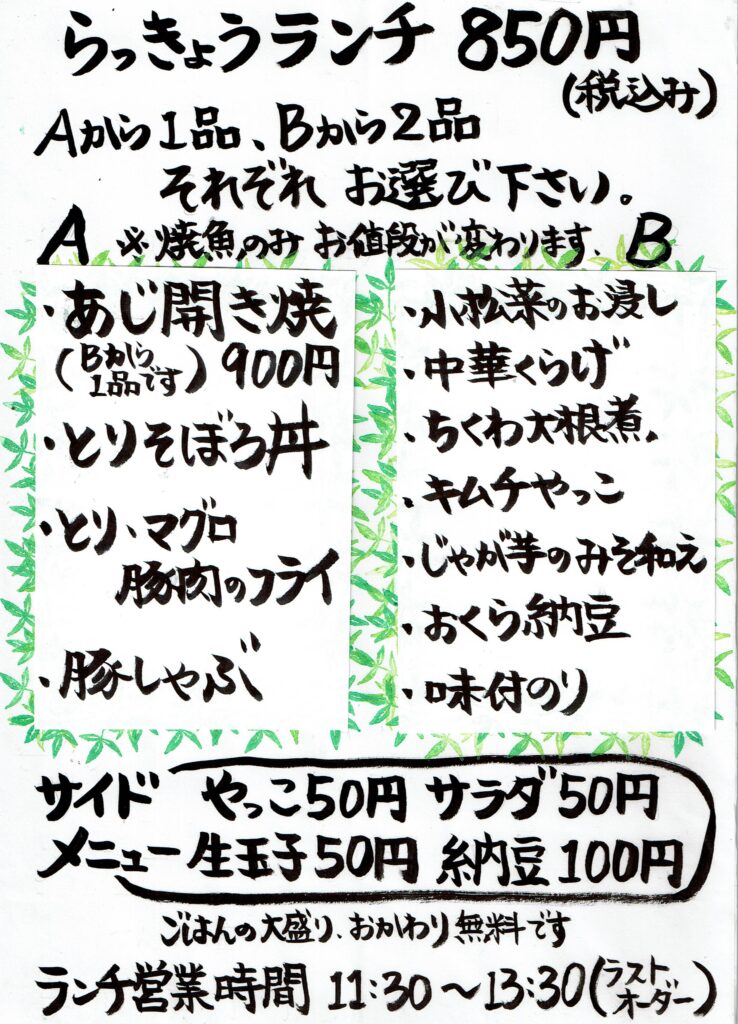 らっきょうランチ 850円
(税込み)
Aから1品、Bから2品
それぞれ お選び下さい。
A ※焼魚のみ お値段が変わります. B
・あじ開き焼
(Bから1品です) 900円
・とりそぼろ丼
・とり、マグロ
豚肉のフライ
・豚しゃぶ
・小松菜のお浸し
・中華くらげ
・ちくわ大根煮.
・キムチやっこ
・じゃが芋のみそ和え
・おくら納豆
・味付のり
サイド やっこ50円 サラダ50円
メニュー 生玉子50円 納豆100円
ごはんの大盛り、おかわり無料です
ランチ営業時間 11:30〜13:30(ラストオーダー)